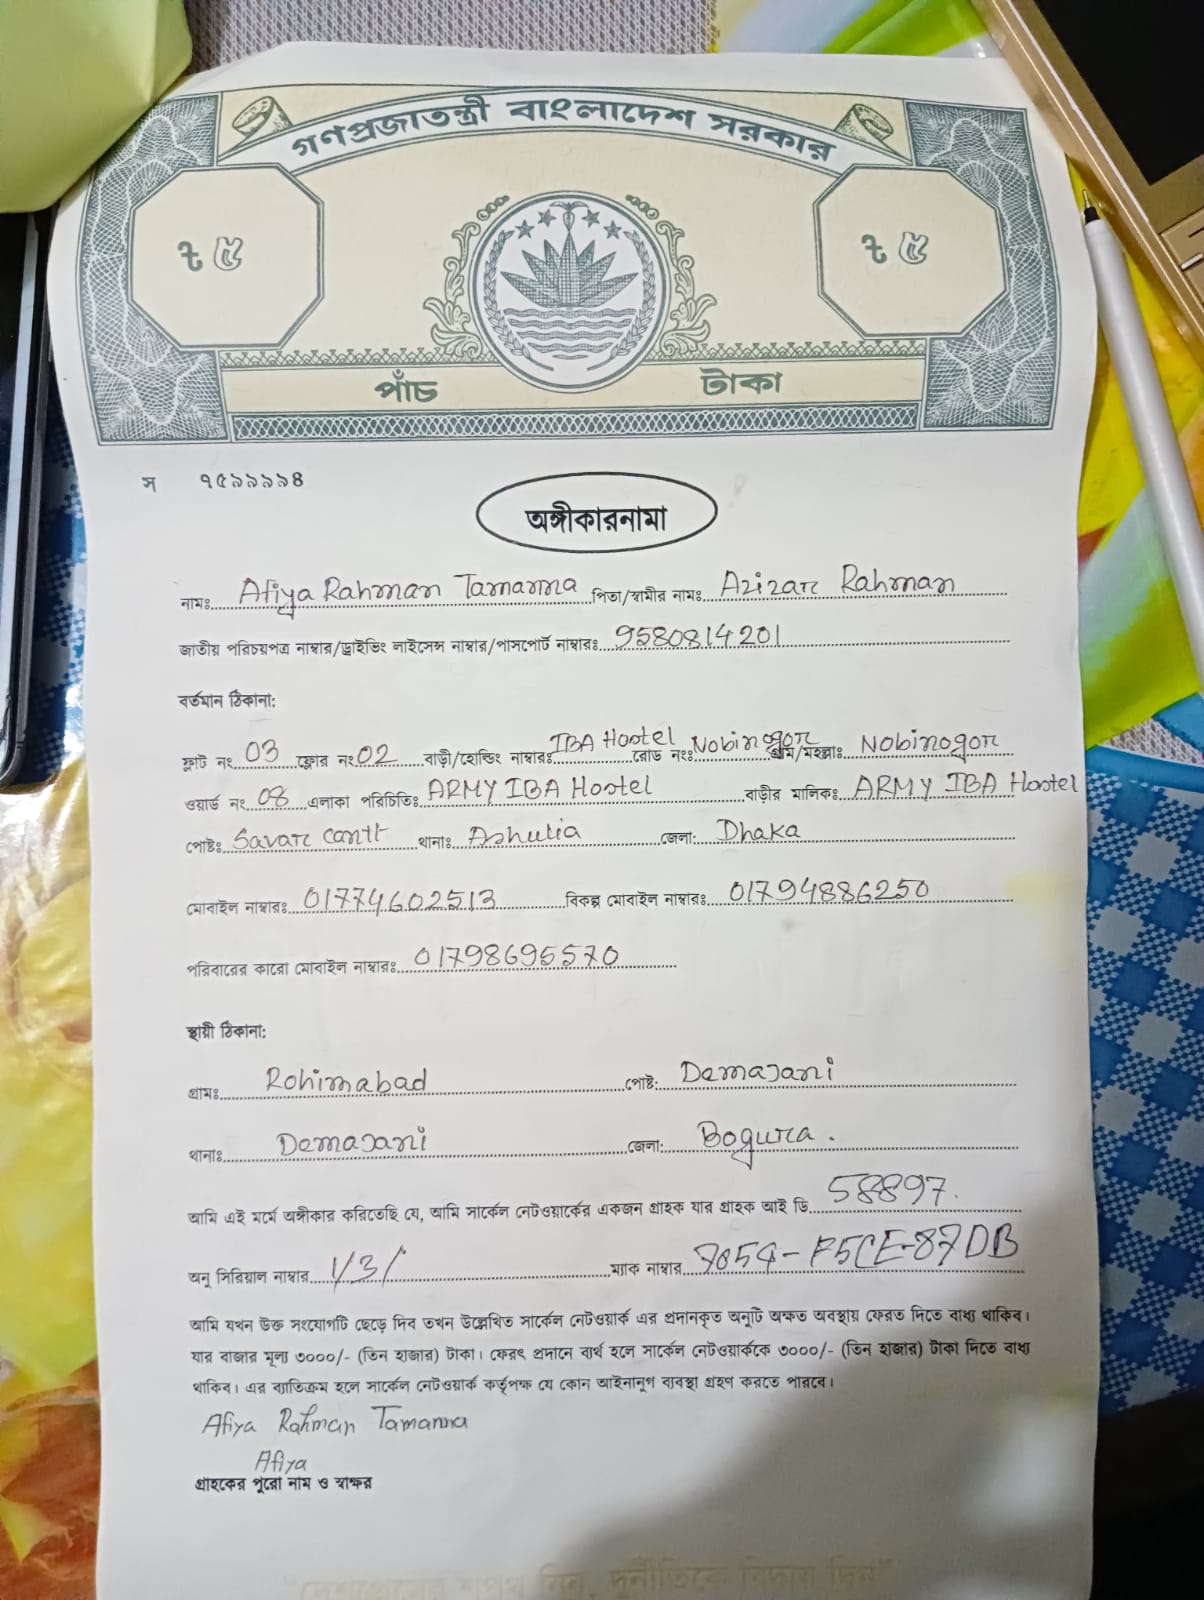 গণপ্রজাতন্ত্রী বাংলাদেশ সরকার
৳ ৫ ৳ ৫
পাঁচ টাকা
স ৭৫৯৯৯৯৪
অঙ্গীকারনামা
নামঃ Afiya Rahman Tamanna পিতা/স্বামীর নামঃ Azizar Rahman
জাতীয় পরিচয়পত্র নাম্বার/ড্রাইভিং লাইসেন্স নাম্বার/পাসপোর্ট নাম্বারঃ 9580814201
বর্তমান ঠিকানা:
ফ্লাট নং 03 ফ্লোর নং 02 বাড়ী/হোল্ডিং নাম্বারঃ IBA Hostel রোড নংঃ Nobinogor গ্রাম/মহল্লাঃ Nobinogor
ওয়ার্ড নং 08 এলাকা পরিচিতিঃ ARMY IBA Hostel বাড়ীর মালিকঃ ARMY IBA Hostel
পোষ্টঃ Savar Cantt থানাঃ Ashulia জেলা: Dhaka
মোবাইল নাম্বারঃ 01774602513 বিকল্প মোবাইল নাম্বারঃ 01794886250
পরিবারের কারো মোবাইল নাম্বারঃ 01798695570
স্থায়ী ঠিকানা:
গ্রামঃ Rohimabad পোষ্ট: Demajani
থানাঃ Demajani জেলা: Bogura.
আমি এই মর্মে অঙ্গীকার করিতেছি যে, আমি সার্কেল নেটওয়ার্কের একজন গ্রাহক যার গ্রাহক আই ডি 58897.
অনু সিরিয়াল নাম্বার 1/3/ ম্যাক নাম্বার
আমি যখন উক্ত সংযোগটি ছেড়ে দিব তখন উল্লেখিত সার্কেল নেটওয়ার্ক এর প্রদানকৃত অনুটি অক্ষত অবস্থায় ফেরত দিতে বাধ্য থাকিব।
যার বাজার মূল্য ৩০০০/- (তিন হাজার) টাকা। ফেরৎ প্রদানে ব্যর্থ হলে সার্কেল নেটওয়ার্ককে ৩০০০/- (তিন হাজার) টাকা দিতে বাধ্য
থাকিব। এর ব্যাতিক্রম হলে সার্কেল নেটওয়ার্ক কর্তৃপক্ষ যে কোন আইনানুগ ব্যবস্থা গ্রহণ করতে পারবে।
Afiya Rahman Tamanna
Afiya
গ্রাহকের পুরো নাম ও স্বাক্ষর
"দেশপ্রেমের শপথ নিন, দুর্নীতিকে বিদায় দিন"